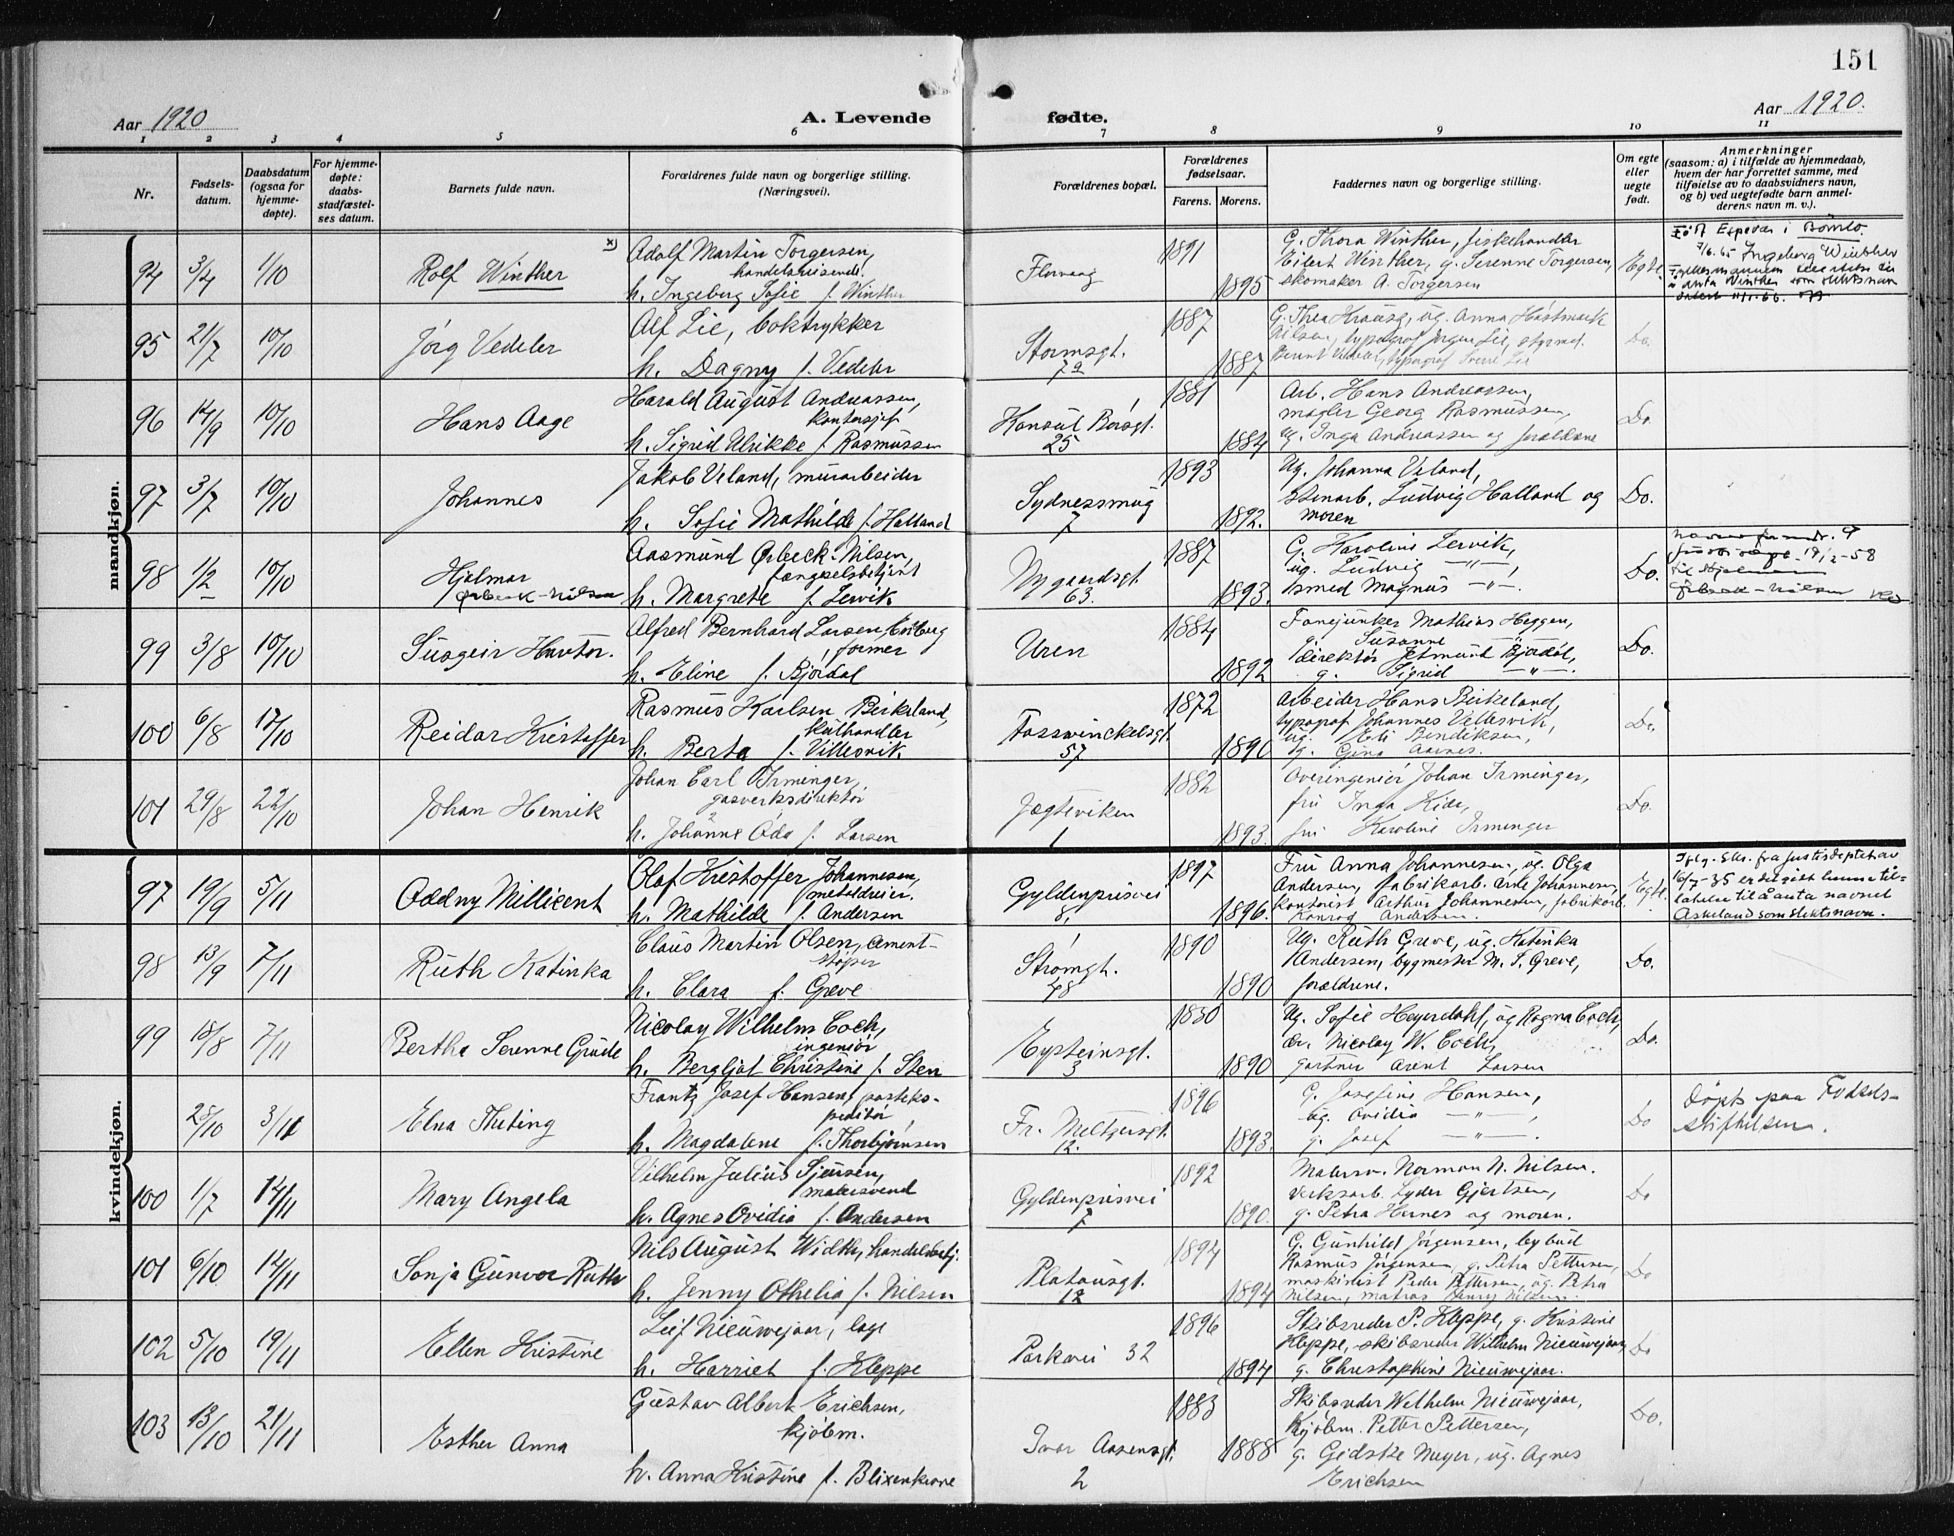 151
Aar 1920
A. Levende
fødte.
Aar 1920.
1 2 3 4 5 6 7 8 9 10 11
Nr.
Fødsels-
datum.
Daabsdatum
(ogsaa for
hjemme-
døpte).
For hjemme-
døpte:
daabs-
stadfæstel-
ses datum.
Barnets fulde navn.
Forældrenes fulde navn og borgerlige stilling.
(Næringsvei).
Forældrenes bopæl.
Forældrenes
fødselsaar.
Farens. Morens.
Faddernes navn og borgerlige stilling.
Om egte
eller
uegte
født.
Anmerkninger
(saasom: a) i tilfælde av hjemmedaab,
hvem der har forrettet samme, med
tilføielse av to daabsvidners navn,
og b) ved uegtefødte barn anmel-
derens navn m. v.).
mandkjøn.
94 3/4 1/10 Rolf Winther x)
Adolf Martin Torgersen,
handelsreisende
h. Ingeborg Sofie f. Winther
Florvaag
1891
1895
G. Thora Winther, fiskehandler
Eilert Winther, g. Serenne Torgersen,
skomaker A. Torgersen
Egte
Født Espevær i Bømlo.
7/6.65 Ingeborg Winther
95 21/7 10/10 Jörg Vedeler
Alf Lie, boktrykker
h. Dagny f. Vedeler
Stormsgt.
72
1887
1887
G. Thea Krausg, ug. Anna Hastmark
Nilsen, typograf Jørgen Lie, styrmd.
Bernt Vedeler, typograf Sverre Lie
Do.
96 12/9 10/10 Hans Aage
Harald August Andreassen,
kontorsjef
h. Sigrid Ulrikke f. Rasmussen
Konsul Børsgt.
25
1881
1884
Arb. Hans Andreassen,
mægler Georg Rasmussen,
ug. Inga Andreassen og forældrene
Do.
97 3/7 10/10 Johannes
Jakob Veland, murarbeider
h. Sofie Mathilde f. Halland
Sydnessmug
7
1893
1892.
Ug. Johanna Veland,
stenarb. Ludvig Halland og
moren
Do.
98 1/2 10/10 Hjalmar
Ørbeck-Nilsen
Aasmund Ørbeck-Nilsen,
fængselsbetjent
h. Margrete f. Lervik
Nygaardsgt.
63.
1887
1893.
G. Karoline Lervik,
ug. Ludvig —"—,
smed Magnus —"—.
Do.
19/2-58
til Hjalmar
Ørbeck-Nilsen
99 3/8 10/10 Susgeir Havtor.
Alfred Bernhard Larsen
former
h. Eline f. Bjørdal
Uren
1884
1892
Fanejunker Mathias Heggen,
g. Susanne "
direktør Jetmund Bjørdal,
g. Sigrid —"—
Do.
100 6/8 17/10 Reidar Kristoffer
Rasmus Karlsen Birkeland,
kulhandler
h. Berta f. Villesvik
Fosswinckelsgt.
57
1872
1890
Arbeider Hans Birkeland,
typograf Johannes Villesvik,
ug. Eli Bendiksen,
g. Gina Aarnes.
Do.
101 29/8 22/10 Johan Henrik
Johan Carl Irminger,
gasverksdirektør
h. Johanne Oda f. Larsen
Jægteviken
1
1882
1893.
Overingeniør Johan Irminger,
fru Inga Kide,
fru Karoline Irminger
Do.
kvindekjøn.
97 19/9 5/11 Oddny Millicent
Olaf Kristoffer Johannesen,
metaldreier.
h. Mathilde f. Andersen
Gyldenprisvei
8
1897
1896.
Fru Anna Johannesen, ug. Olga
Andersen, fabrikarb. Arne Johannesen,
kontorist Arthur Johannesen, fabrikarb.
Konrad Andersen.
Egte
Iflg. skr. fra justisdeptet av
16/7-35 er det gitt henne til-
latelse til å anta navnet
Askeland som slektsnavn.
98 13/9 7/11 Ruth Katinka
Claus Martin Olsen, cement-
støper
h. Clara f. Greve
Strømgt.
48
1890
1890
Ug. Ruth Greve, ug. Katinka
Andersen, bygmester M. S. Greve,
forældrene.
Do.
99 18/8 7/11 Bertha Serenne Grude
Nicolay Wilhelm Coch,
ingeniør
h. Bergljot Christine f. Sten
Eysteinsgt.
3
1880
1890
Ug. Sofie Heyerdahl, ug Ragna Coch,
dr. Nicolay W. Coch,
gartner Arent Larsen
Do.
28/10 3/11 Elna Theting
Frantz Josef Hansen, posteks-
peditør,
h. Magdalene f. Thorbjørnsen
Fr. Meltzersgt.
12.
1896
1893.
G. Josefine Hansen,
ug. Ovidia —"—,
g. Josef —"—.
Do
Døpt paa Fødsels-
stiftelsen.
100 1/7 14/11 Mary Angela
Vilhelm Julius Sjursen,
malersvend
h. Agnes Ovidia f. Andersen
Gyldenprisvei
7
1892
1890.
Malersv. Norman N. Nilsen.
verksarb. Lyder Gjertsen,
g. Petra Hirnes og moren.
Do
101 6/10 14/11 Sonja Gunvor Ruth
Nils August Width, handelsbetj.
h. Jenny Othelia f. Nilsen
Platousgt.
12
1894
1894
G. Gunhild Jørgensen, bybud
Rasmus Jørgensen, g. Petra Pettersen,
maskinist Peder Pettersen, ug. Petra
Nilsen, matros Henry Nilsen.
Do
102 5/10 19/11 Ellen Kristine
Leif Nieuwejaar, læge
h. Harriet f. Kleppe
Parkvei 32
1896
1894
Skibsreder P. Kleppe, g. Kristine
Kleppe, skibsreder Wilhelm Nieuwejaar,
g. Christophine Nieuwejaar.
Do
103 13/10 21/11 Esther Anna
Gustav Albert Erichsen,
kjøbm.
h. Anna Kristine f. Blixenkrone
Ivar Aasensgt.
2
1883
1888
Skibsreder Wilhelm Nieuwejaar,
kjøbm. Petter Pettersen,
g. Gidske Meyer, ug. Agnes
Erichsen
Do.